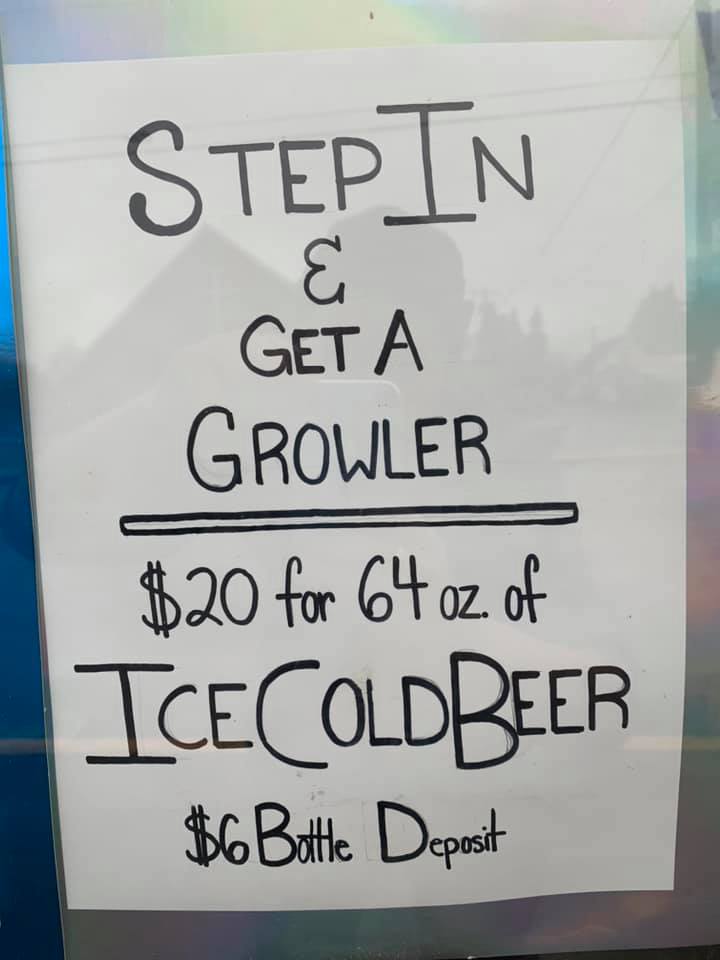 STEP IN
&
GET A
GROWLER
$20 for 64 oz. of
ICE COLD BEER
$6 Bottle Deposit